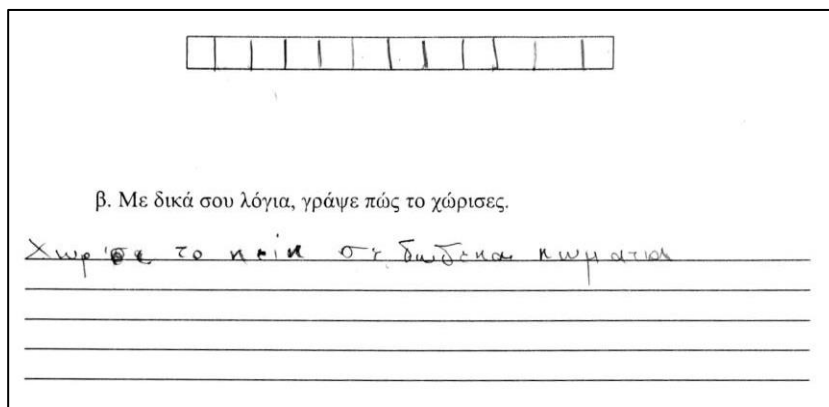 β. Με δικά σου λόγια, γράψε πώς το χώρισες.
Χωρισε το κεικ σε δωδεκα κωματια